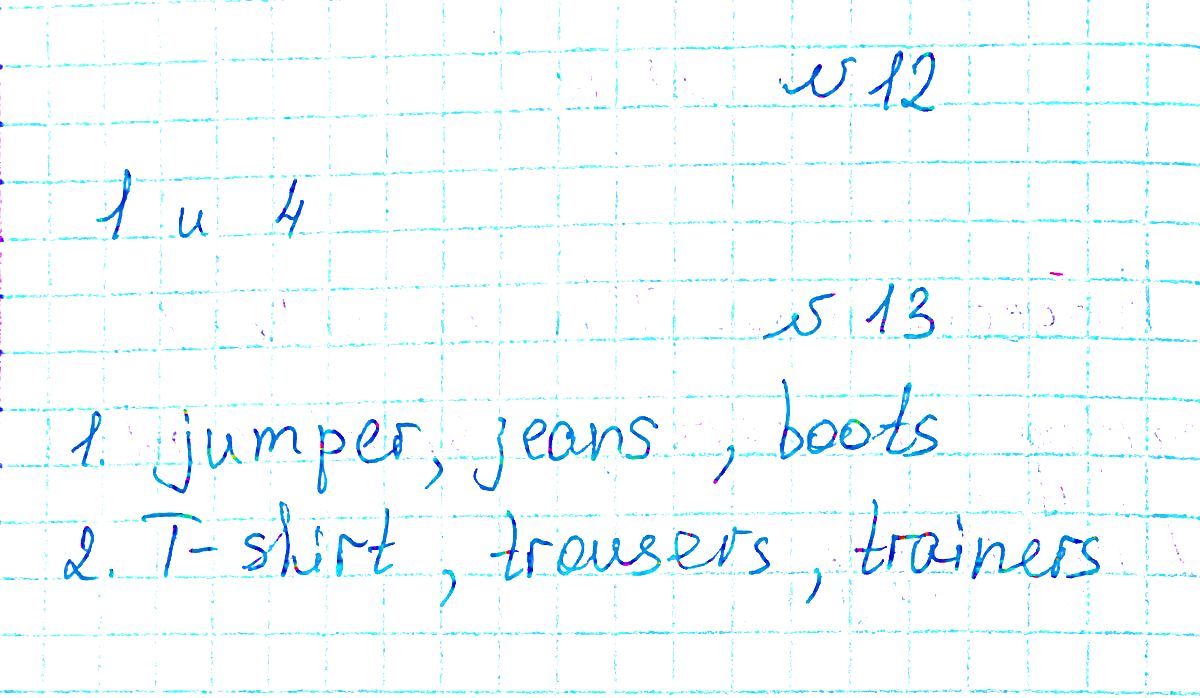 № 12
1 и 4
№ 13
1. jumper, jeans, boots
2. T-shirt, trousers, trainers